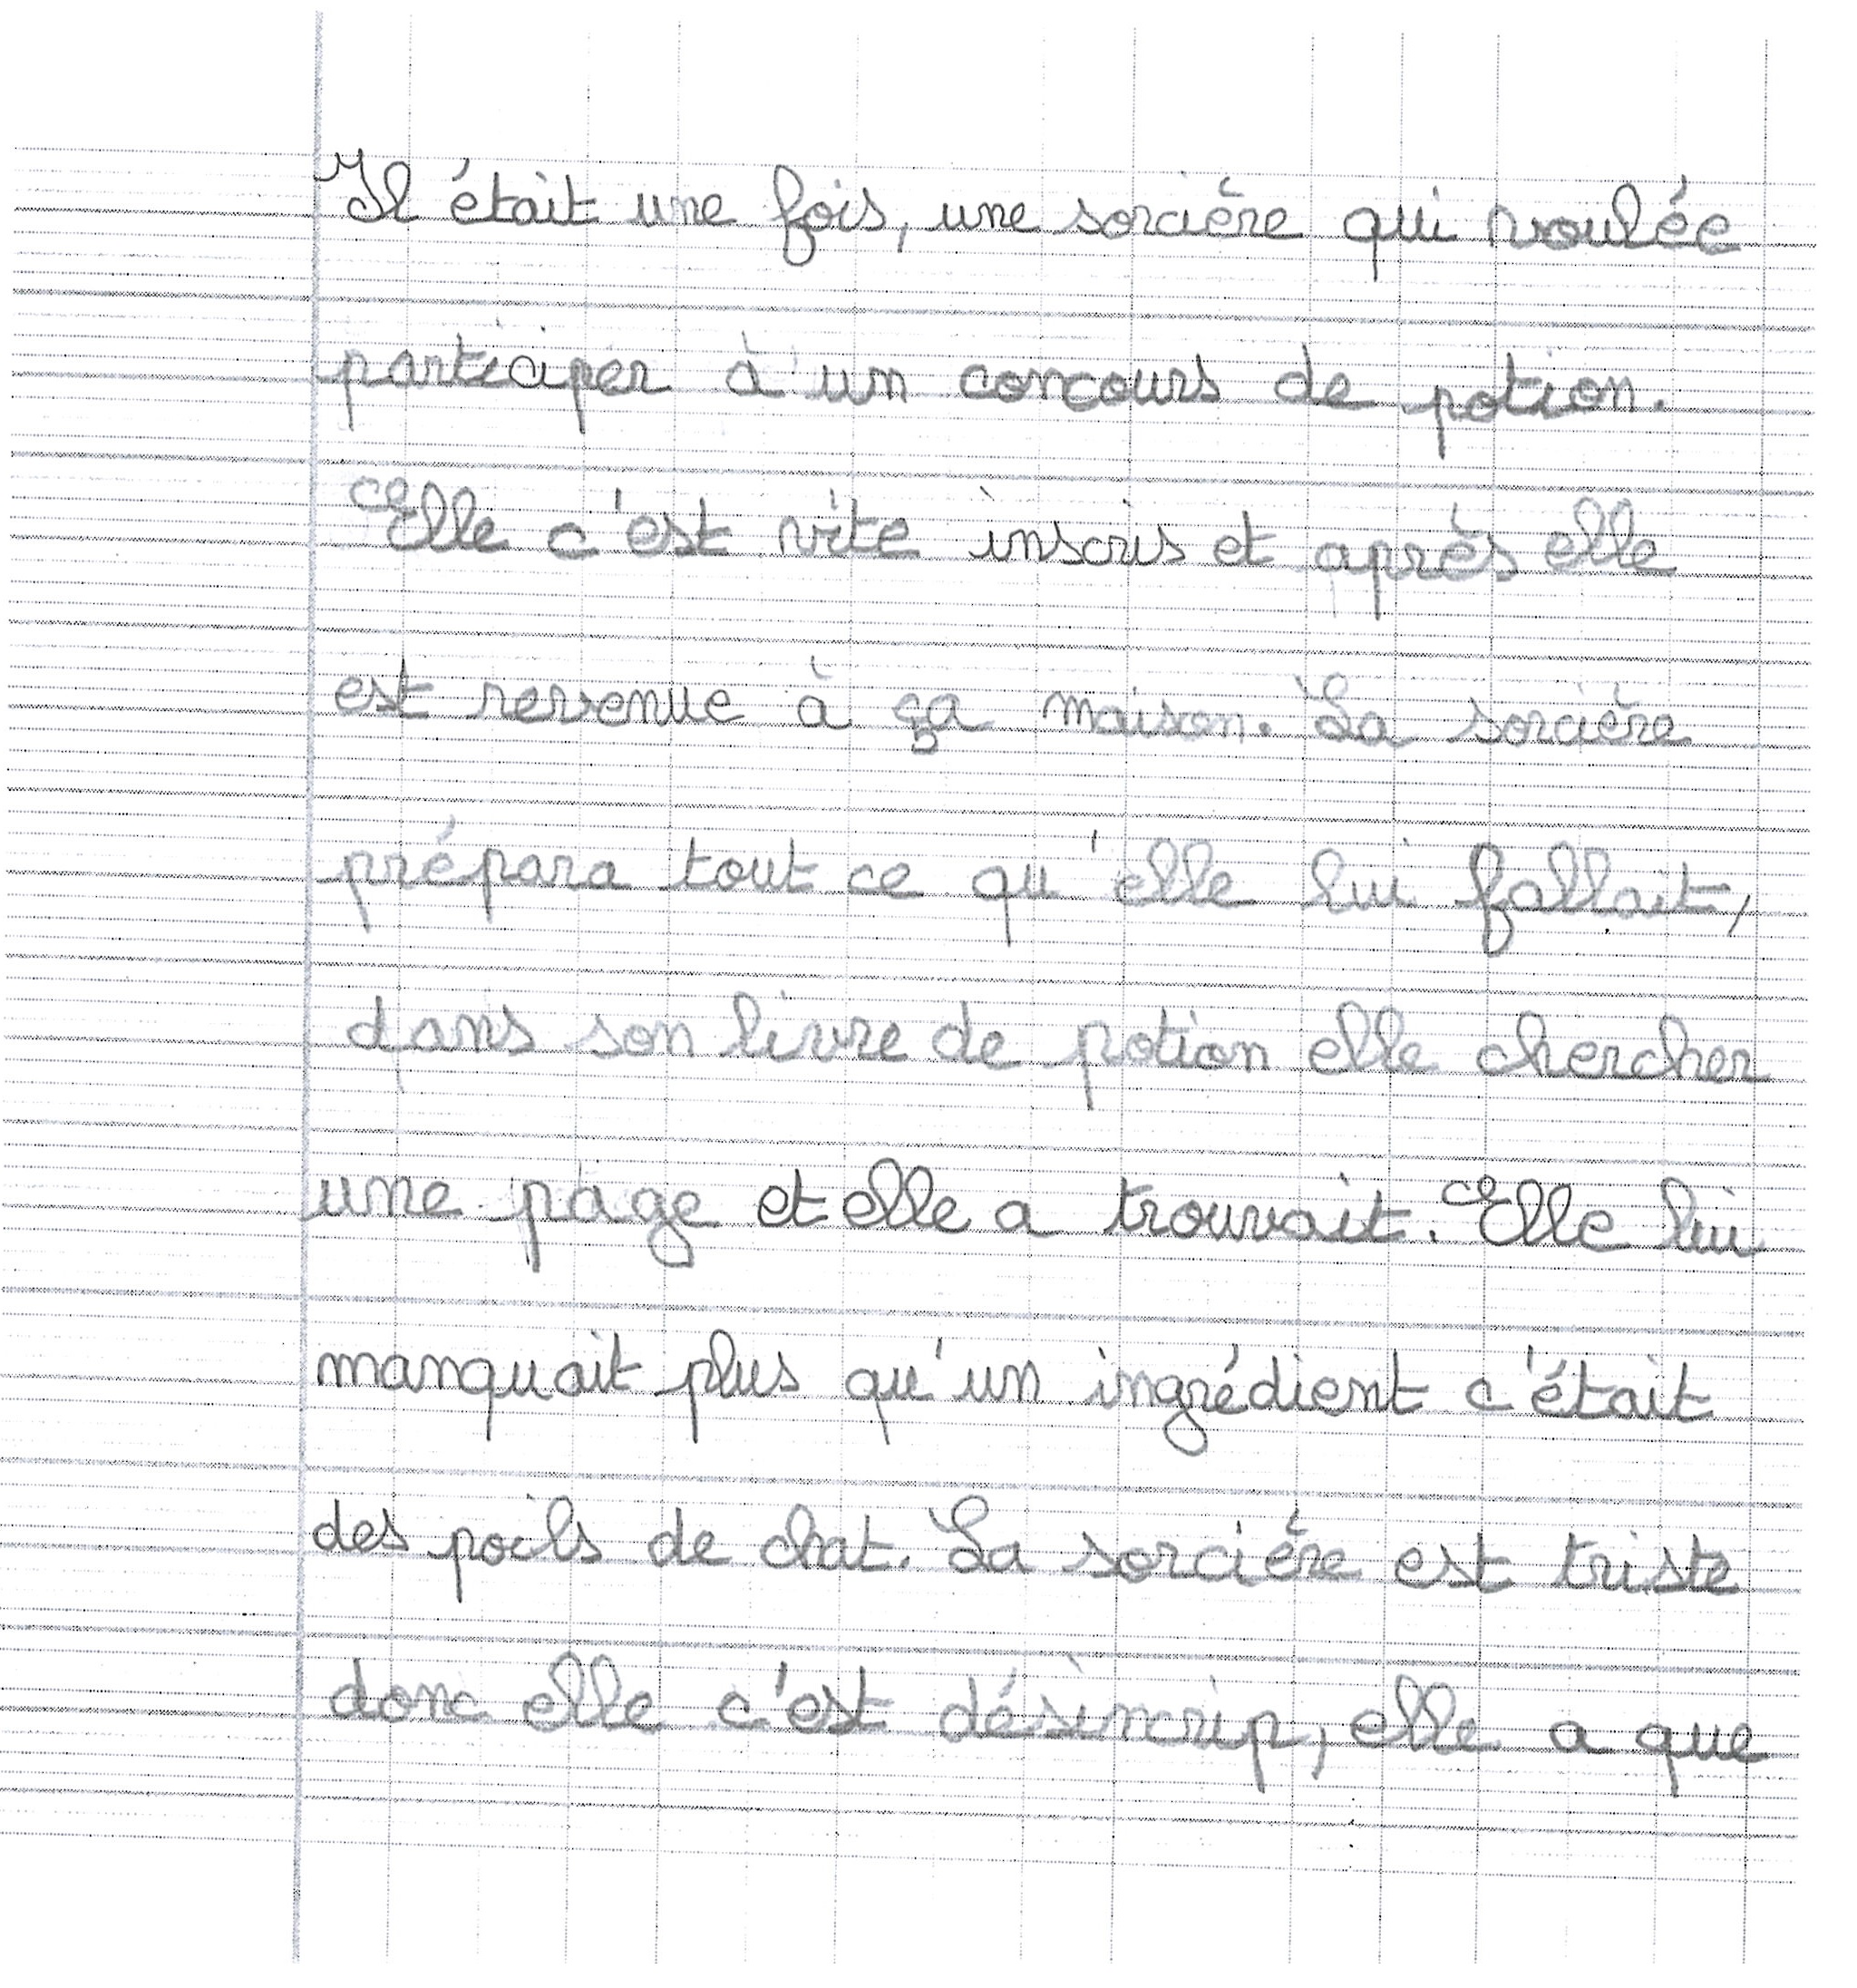 Il était une fois, une sorcière qui voulée
participer à un concours de potion.
Elle c'est vite inscris et après elle
est revenue à ça maison. La sorcière
prépara tout ce qu'elle lui fallait,
dans son livre de potion elle chercher
une page et elle a trouvait. Elle lui
manquait plus qu'un ingrédient c'était
des poils de chat. La sorcière est triste
donc elle c'est désincrip, elle a que